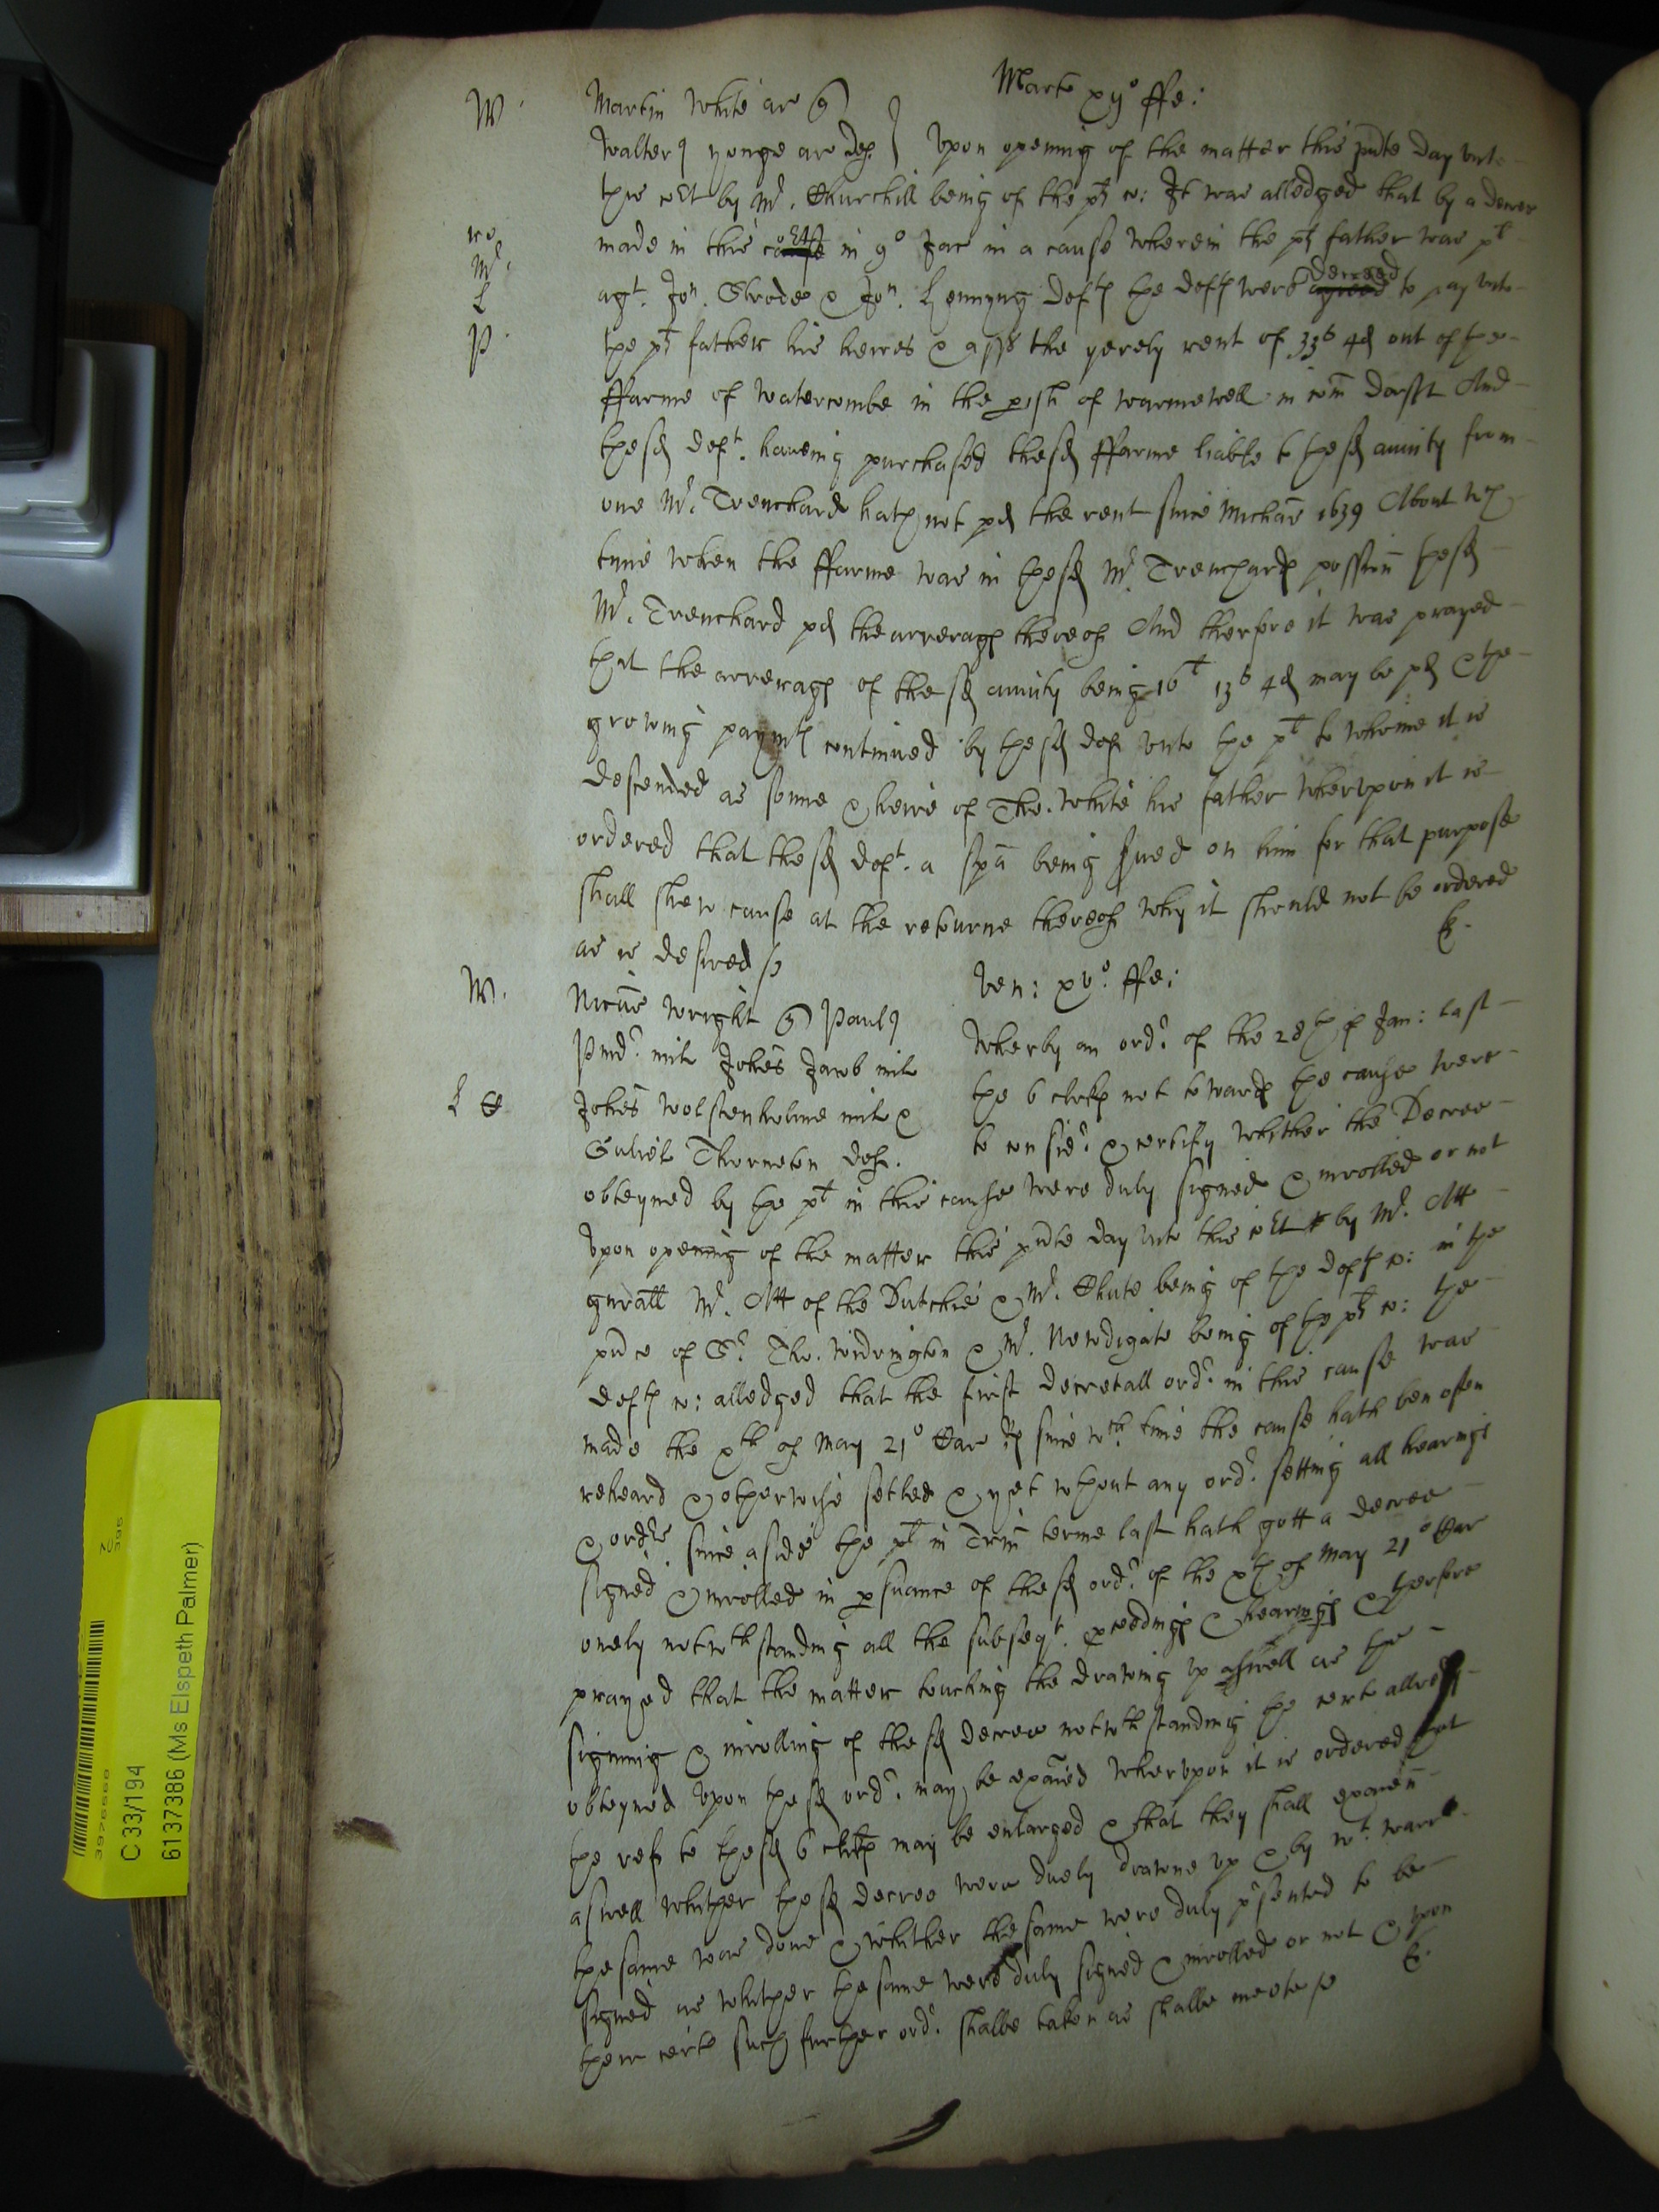 Marte xijº ffe:
W. Martin White ar q
Walterq yonge ar def. } Vpon opening of the matter this pnte day vnto
this cot by Mr. Churchill being of the pts co: It was alledged that by a decree
made in this cause cort in 9º Jac in a cause wherein the pts father was pt
re Mr. L agt. Jon. Strode & Jon. Hennyng defts the defts were agreed decreed to pay vnto
P. the pts father his heires & asss the yerely rent of 33s 4d out of the
ffarme of Watercombe in the pish of Warmewell in com Dorsst And
the sd deft. haveing purchased the sd ffarme liable to the sd anuity from
one Mr. Trenchard hath not pd the rent since Michas 1639 About wch
tyme when the ffarme was in the sd Mr. Trenchards possion the sd
Mr. Trenchard pd the arrerages thereof And therfore it was prayed
that the arrerages of the sd anuity being 16l 13s 4d may be pd & the
growing paymts continued by the sd def vnto the pt to whome it is
descended as sonne & heire of Tho. White his father Wherupon it is
ordered that the sd deft. a spa being sued on him for that purpose
shall shew cause at the retourne thereof why it should not be ordered
as is desired
Ven: xvº. ffe:
W. Nicus Wright q Paulq
Pind. milt Johes Jacob milt
L C Johes Wolstenholme milt &
Guliel Thornton def.
Wherby an ordr. of the 28th of Jan: last
the 6 clerks not towards the cause were
to considr. & certify whither the Decree
obteyned by the pt in this cause were duly signed & inrolled or not
Vpon opening of the matter this pnte day vnto this cot by Mr. Att
gnrall Mr. Att of the Dutchie & Mr. Chute being of the defts co: in the
pnce of Sr. Tho. Widrington & Mr. Newdigate being of the pts co: the
defts co: alledged that the first decretall ordr. in this cause was
made the xth of May 21º Car Rs since wch. time the cause hath ben often
reheard & otherwise setled & yet wthout any ordr. setting all hearings
& ordrs since aside the pt in Trin terme last hath gott a decree
signed & inrolled in psuance of the sd ordr. of the xth of May 21º Car
onely notwthstanding all the subseqt. pceedings & hearings & therfore
prayed that the matter touching the drawing vp aswell as the
signing & inrolling of the sd decree notwthstanding the certe allredy
obteyned vpon the sd ordr. may be exaied Wherupon it is ordered that
the refr to the sd 6 clerks may be enlarged & that they shall examen
aswell whither the sd decree were duely drawne vp & by wt. warrt
the same was done & whither the same were duly psented to be
signed as whither the same were duly signed & inrolled or not & vpon
their certe such further ordr. shalbe taken as shalbe meete
C 33/194
6137386 (Ms Elspeth Palmer)